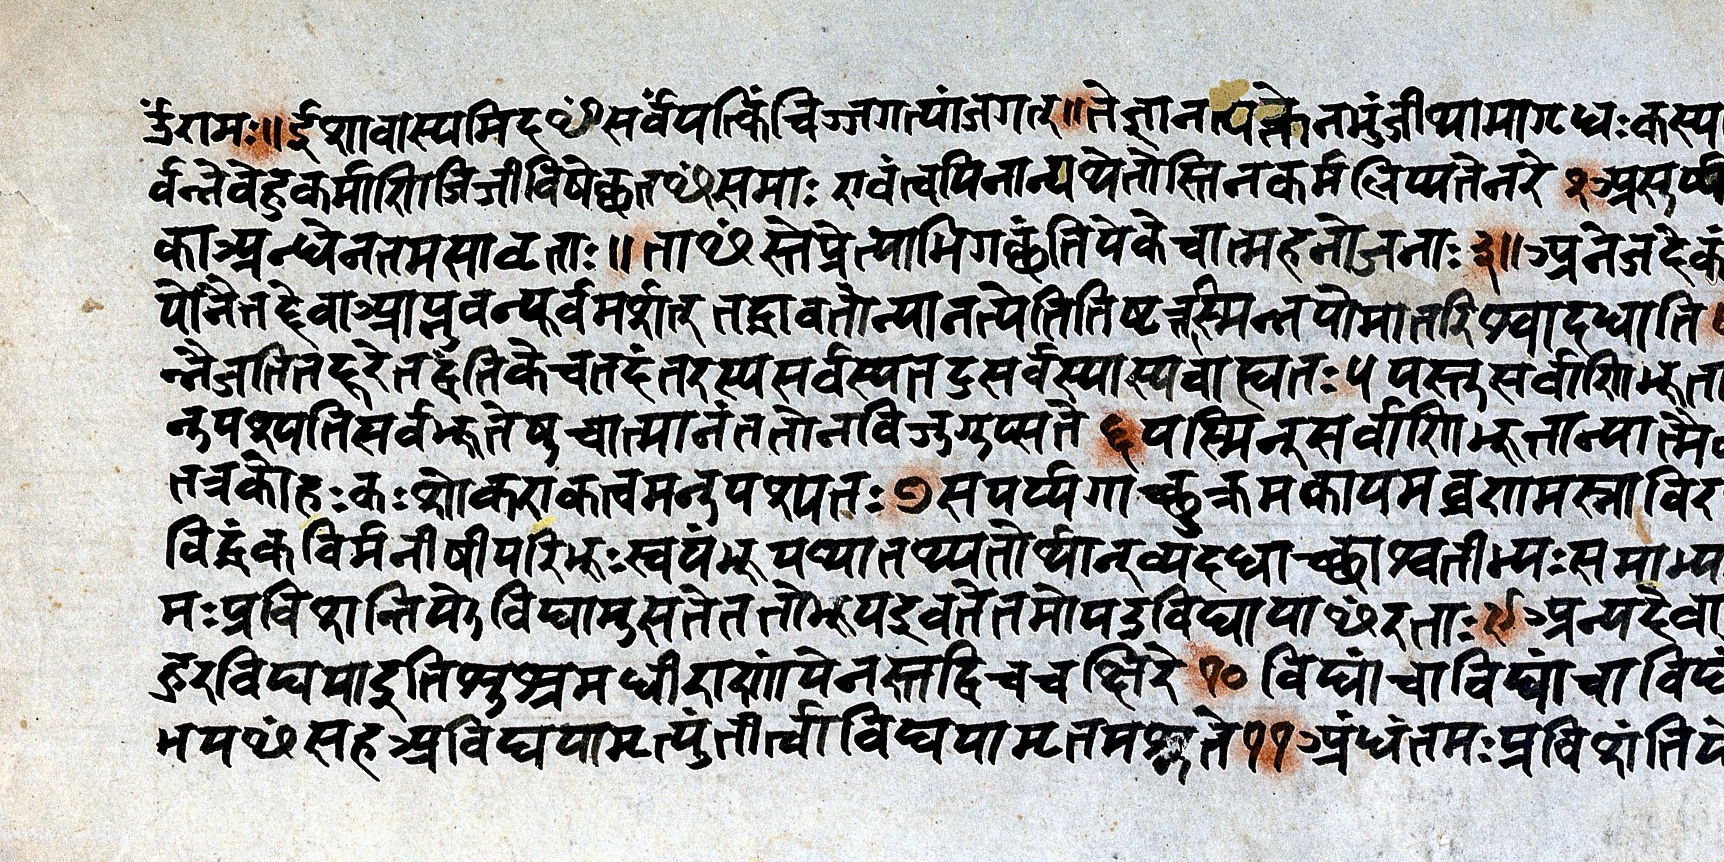 उँरामः॥ईशावास्यमिदꣳसर्वंयत्किंचिज्जगत्यांजगत्॥तेनत्यक्तेनभुंजीथामागृधःकस्य
र्वन्नेवेहकर्माणिजिजीविषेच्छतꣳसमाः एवंत्वयिनान्यथेतोस्तिनकर्मलिप्यतेनरे २असुर्य्या
काअन्धेनतमसावृताः॥ताꣳस्तेप्रेत्याभिगच्छंतियेकेचात्महनोजनाः३॥अनेजदेकं
योनैनद्देवाआप्नुवन्पूर्वमर्शत् तद्धावतोन्यानत्येतितिष्ठत्तस्मिन्नपोमातरिश्वादधाति
न्नैजतितद्दूरेतद्वंतिकेचतदंतरस्यसर्वस्यतदुसर्वस्यास्यवाह्यतः५यस्तुसर्वाणिभूता
नुपश्यतिसर्वभूतेषुचात्मानंततोनविजुगुप्सते ६यस्मिन्सर्वाणिभूतान्यात्मै
तत्रकोहःकःशोकएकत्वमनुपश्यतः७सपर्य्यगाच्छुक्रमकायमव्रणमस्नाविर
विद्धंकविर्मनीषीपरिभूःस्वयंभूर्यथातथ्यतोर्थान्व्यदधाच्छाश्वतीभ्यःसमाभ्य
मःप्रविशन्तियेऽविद्यामुपासतेततोभूयइवतेतमोयउविद्यायाꣳरताः९अन्यदेवा
हुरविद्ययाइतिशुश्रुमधीराणांयेनस्तद्विचचक्षिरे१०विद्यांचाविद्यांचाविद्यं
भयꣳसहअविद्ययामृत्युंतीर्त्वाविद्ययामृतमश्नुते११अंधंतमःप्रविशंतिये